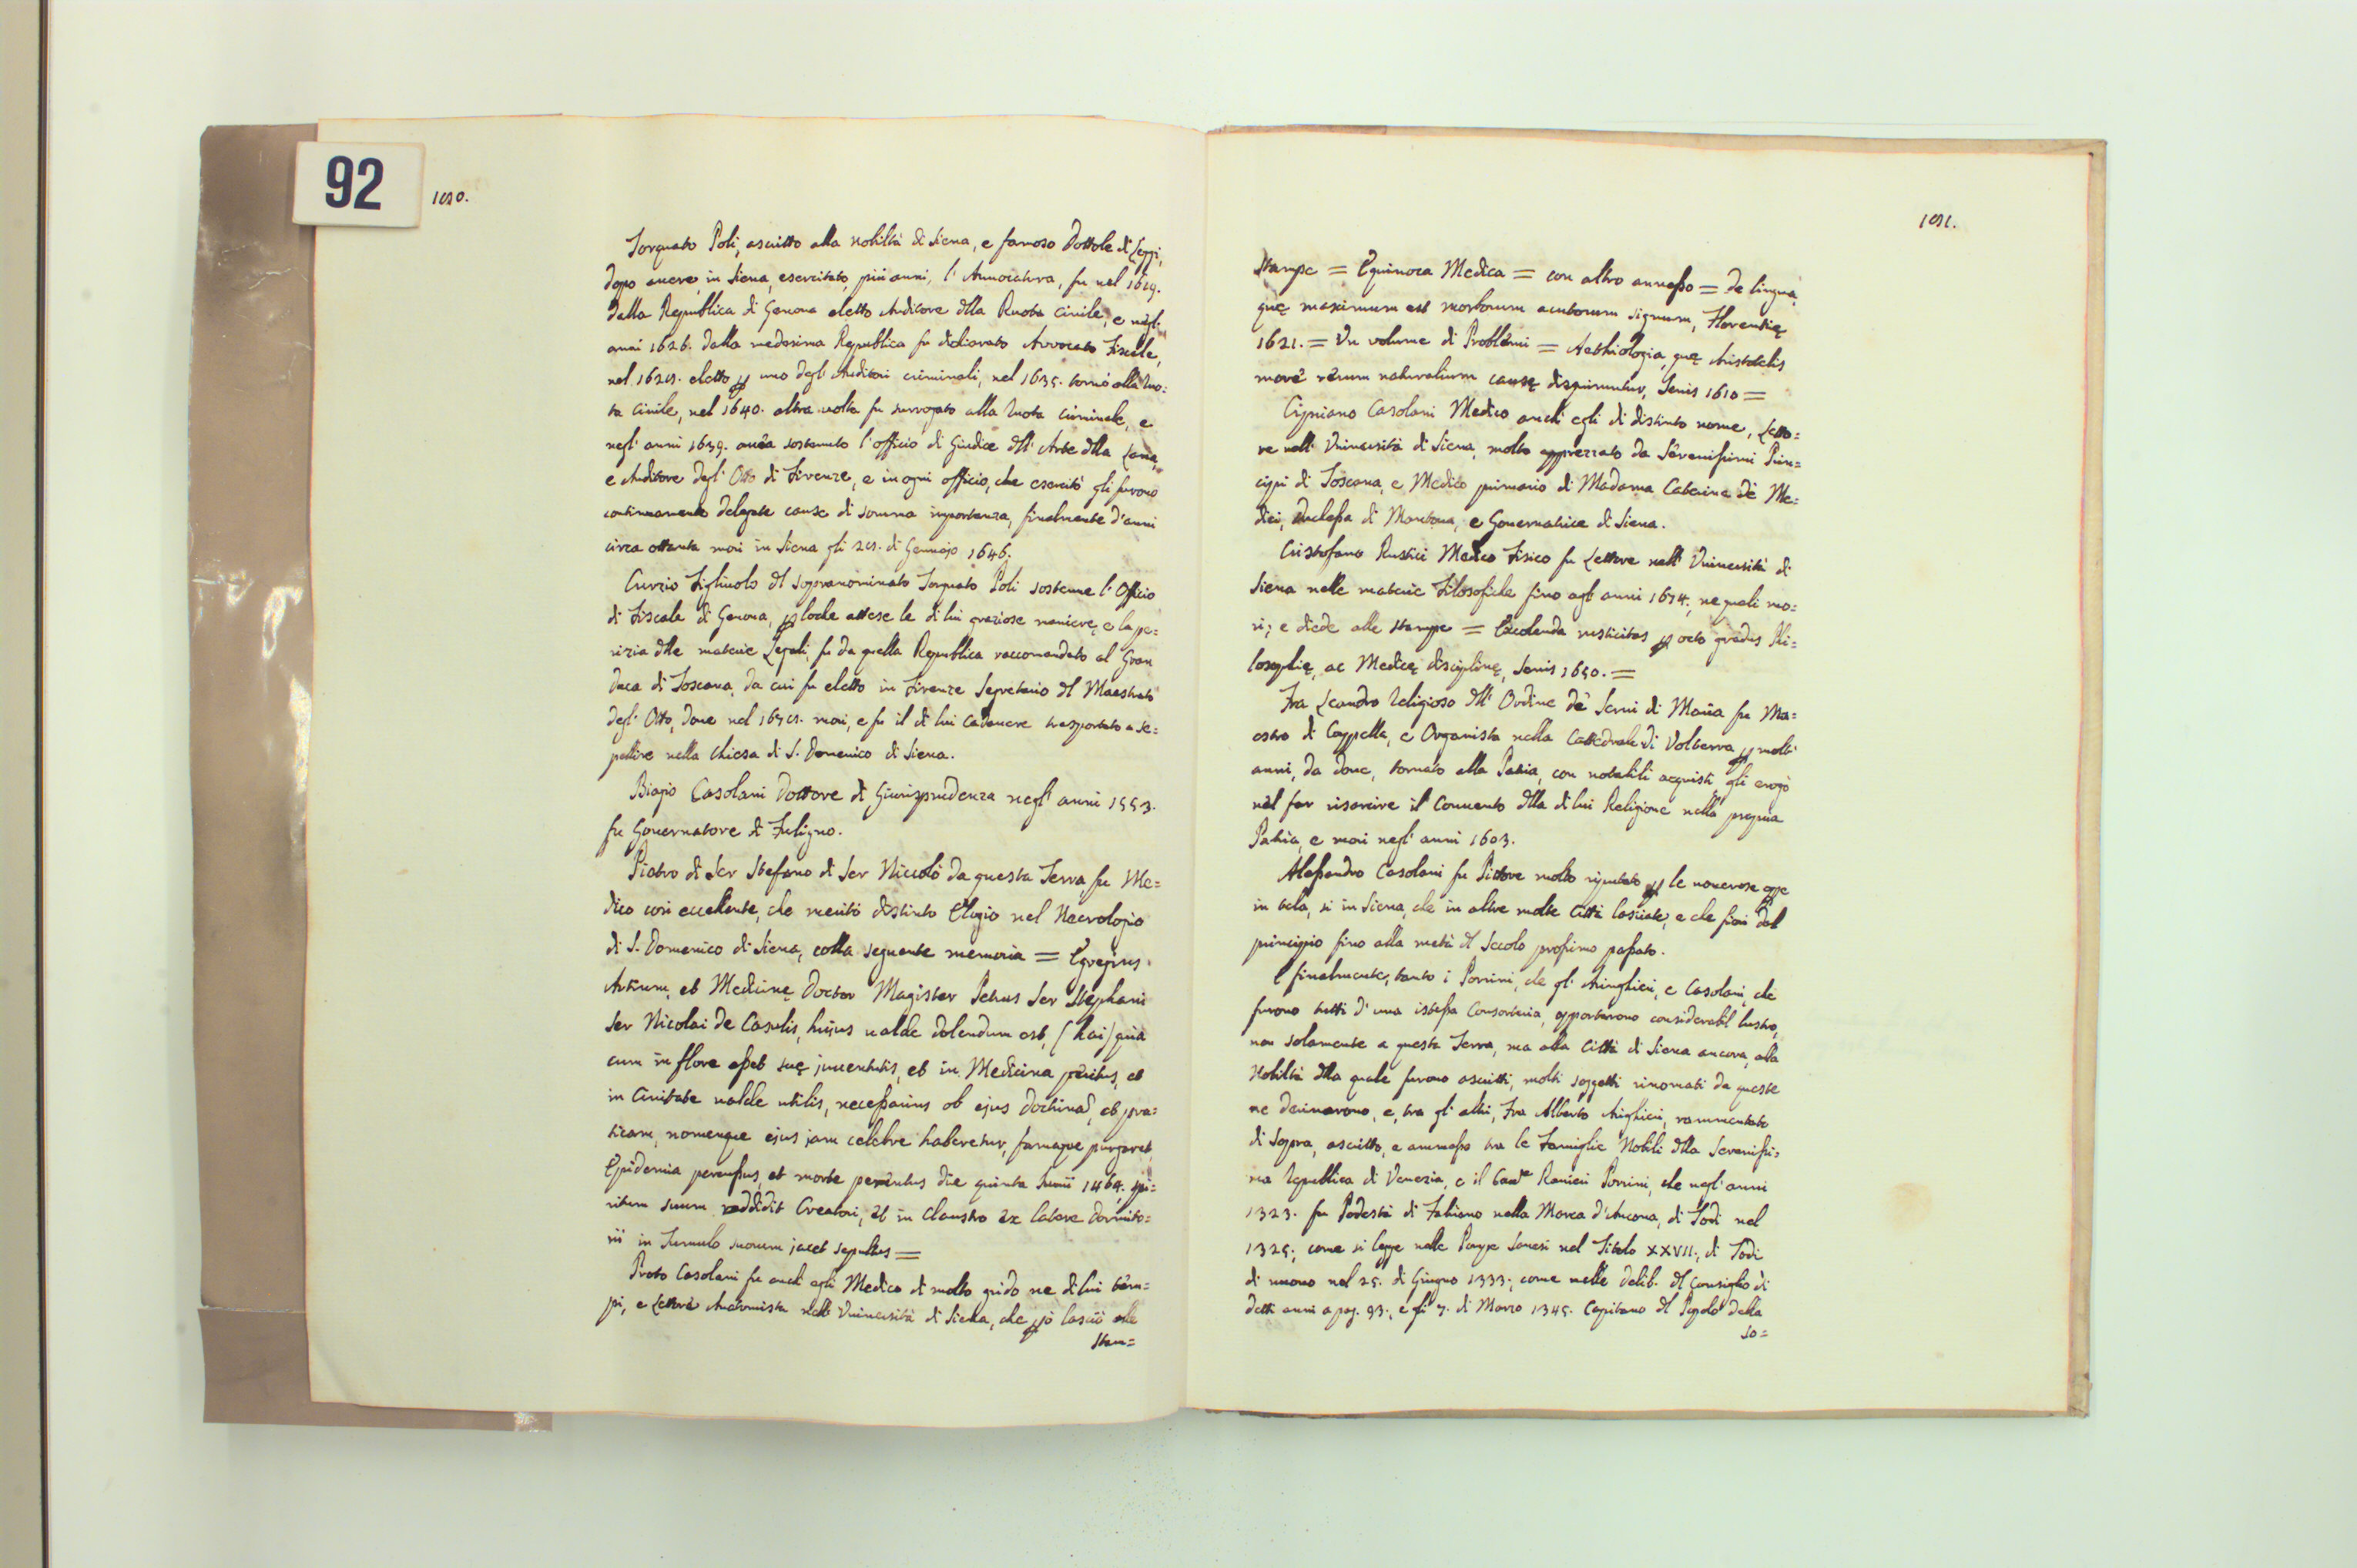 92
Torquato Poli, ascritto alla Nobiltà di Siena, e famoso Dottole di Leggi,
dopo avere in Siena esercitato più anni l'Auuocatura, fu nel 1619.
dalla Repubblica di Genova eletto Auditore dlla Ruota Civile, e negl'
anni 1626. dalla medesima Repubblica fu dichiarato Avvocato Fiscale,
eletto uno degl'Auditori criminali, nel 1635. tornò alla Ruo=
ta Civile, nel 1640. altra volta fu surrogato alla Ruota Criminale, e
negl'anni 1639. avea sostenuto l'officio di Giudice dll'Arte dlla Lana,
e Auditore degl'Otto di Firenze, e in ogni officio, che esercitò gli furono
continuamente delegate cause di somma importanza, finalmente d'anni
circa ottanta morì in Siena gli di Gennajo 1646.
Curzio Figliuolo dl sopranominato Torquato Poli sostenne l'Officio
di Fiscale di Genova, loche attese le di lui graziose maniere, e la pe=
rizia dlle materie Legali, fu da quella Repubblica raccomandato al Gran
Duca di Toscana, da cui fu eletto in Firenze Segretario dl Maestrato
degl'Otto, doue nel morì, e fu il di lui Cadauere trasportato a se=
pellire nella Chiesa di S. Domenico di Siena.
Biagio Casolani Dottore di Giurisprudenza negl'anni 1553.
fu Gouernatore di Fuligno.
Pietro di Ser Stefano di Ser Niccolò da questa Terra fu Me=
dico così eccellente, che meritò distinto Elogio nel Necrologio
di S. Domenico di Siena, colla seguente memoria = Egregius
Artium, et Medicinę Doctor Magister Petrus Ser Stephani
Ser Nicolai de Casulis, hujus ualde dolendum est, (hai) quia
cum in flore eſset suę juuentutis, et in Medicina peritus, et
in Ciuitate ualde utilis, neceſsarius ob ejus doctrinaz, et pra=
ticam, nomenque ejus jam celebre haberetur, famaque
Epidemia percuſsus, et morte die quinta Junii 1464. spi=
ritum suum reddidit Creatori, et in Claustro ex latere dormito=
rii in Tumulo suorum jacet sepultus =
Proto Casolani fu anch'egli Medico di molto grido ne di lui tem=
pi, e Lettore Anatomista nell'Vniuersità di Siena, che lasciò alle
Stam=
Stampe = Equinoca Medica = con altro anneſso = de lingua,
quę maximum est morborum acutorum signum, Florentię
1621. = Vn volume di Problemi = Aethiologia, quę Aristotelis
more rerum naturalium causę disquiruntur, Senis 1610 =
Cipriano Casolani Medico anch'egli di distinto nome, Letto=
re nell'Vniuersità di Siena, molto apprezzato da Sereniſsimi Prin=
cipi di Toscana, e Medico primario di Madama Caterina de' Me=
dici, Ducheſsa di Mantoua, e Gouernatrice di Siena.
Cristofano Rustici Medico Fisico fu Lettore nell'Vniuersità di
Siena nelle materie Filosofiche fino agl'anni 1674., ne quali mo=
rì; e diede alle Stampe = Excolenda rusticitas octo gradus Phi=
losophię, ac Medicę disciplinę, Senis 1650. =
Fra Leandro Religioso dll'Ordine de' Serui di Maria fu Ma=
estro di Cappella, e Organista nella Cattedrale di Volterra molti
anni, da doue, tornato alla Patria, con notabili acquisti, gli erogò
nel far risarcire il Conuento dlla di lui Religione nella propria
Patria, e morì negl'anni 1603.
Aleſsandro Casolani fu Pittore molto riputato le numerose
in tela, si in Siena, che in altre molte Città lasciate, e che fiorì dal
principio fino alla metà dl Secolo proſsimo paſsato.
E finalmente, tanto i Porrini, che gl'Aringhieri, e Casolani, che
furono tutti d'una isteſsa Consorteria, apportarono considerabil lustro,
non solamente a questa Terra, ma alla Città di Siena ancora, alla
Nobiltà dlla quale furono ascritti, molti soggetti rinomati da queste
ne deriuarono, e, tra gl'altri, Fra Alberto rammentato
di sopra, ascritto, e ammeſso tra le Famiglie Nobili dlla Sereniſsi=
ma Republica di Venezia, e il Ranieri Porrini, che negl'anni
1323. fu Podestà di Fabiano nella Marca d'Ancona, di Todi nel
1325., come si legge nelle Pompe Sanesi nel Titolo XXVII., di Todi
di nuouo nel 25. di Giugno 1333., come nelle delib. dl Consiglio di
detti anni a pag. 93., e di Marzo 1345. Capitano dl Popolo della
so=